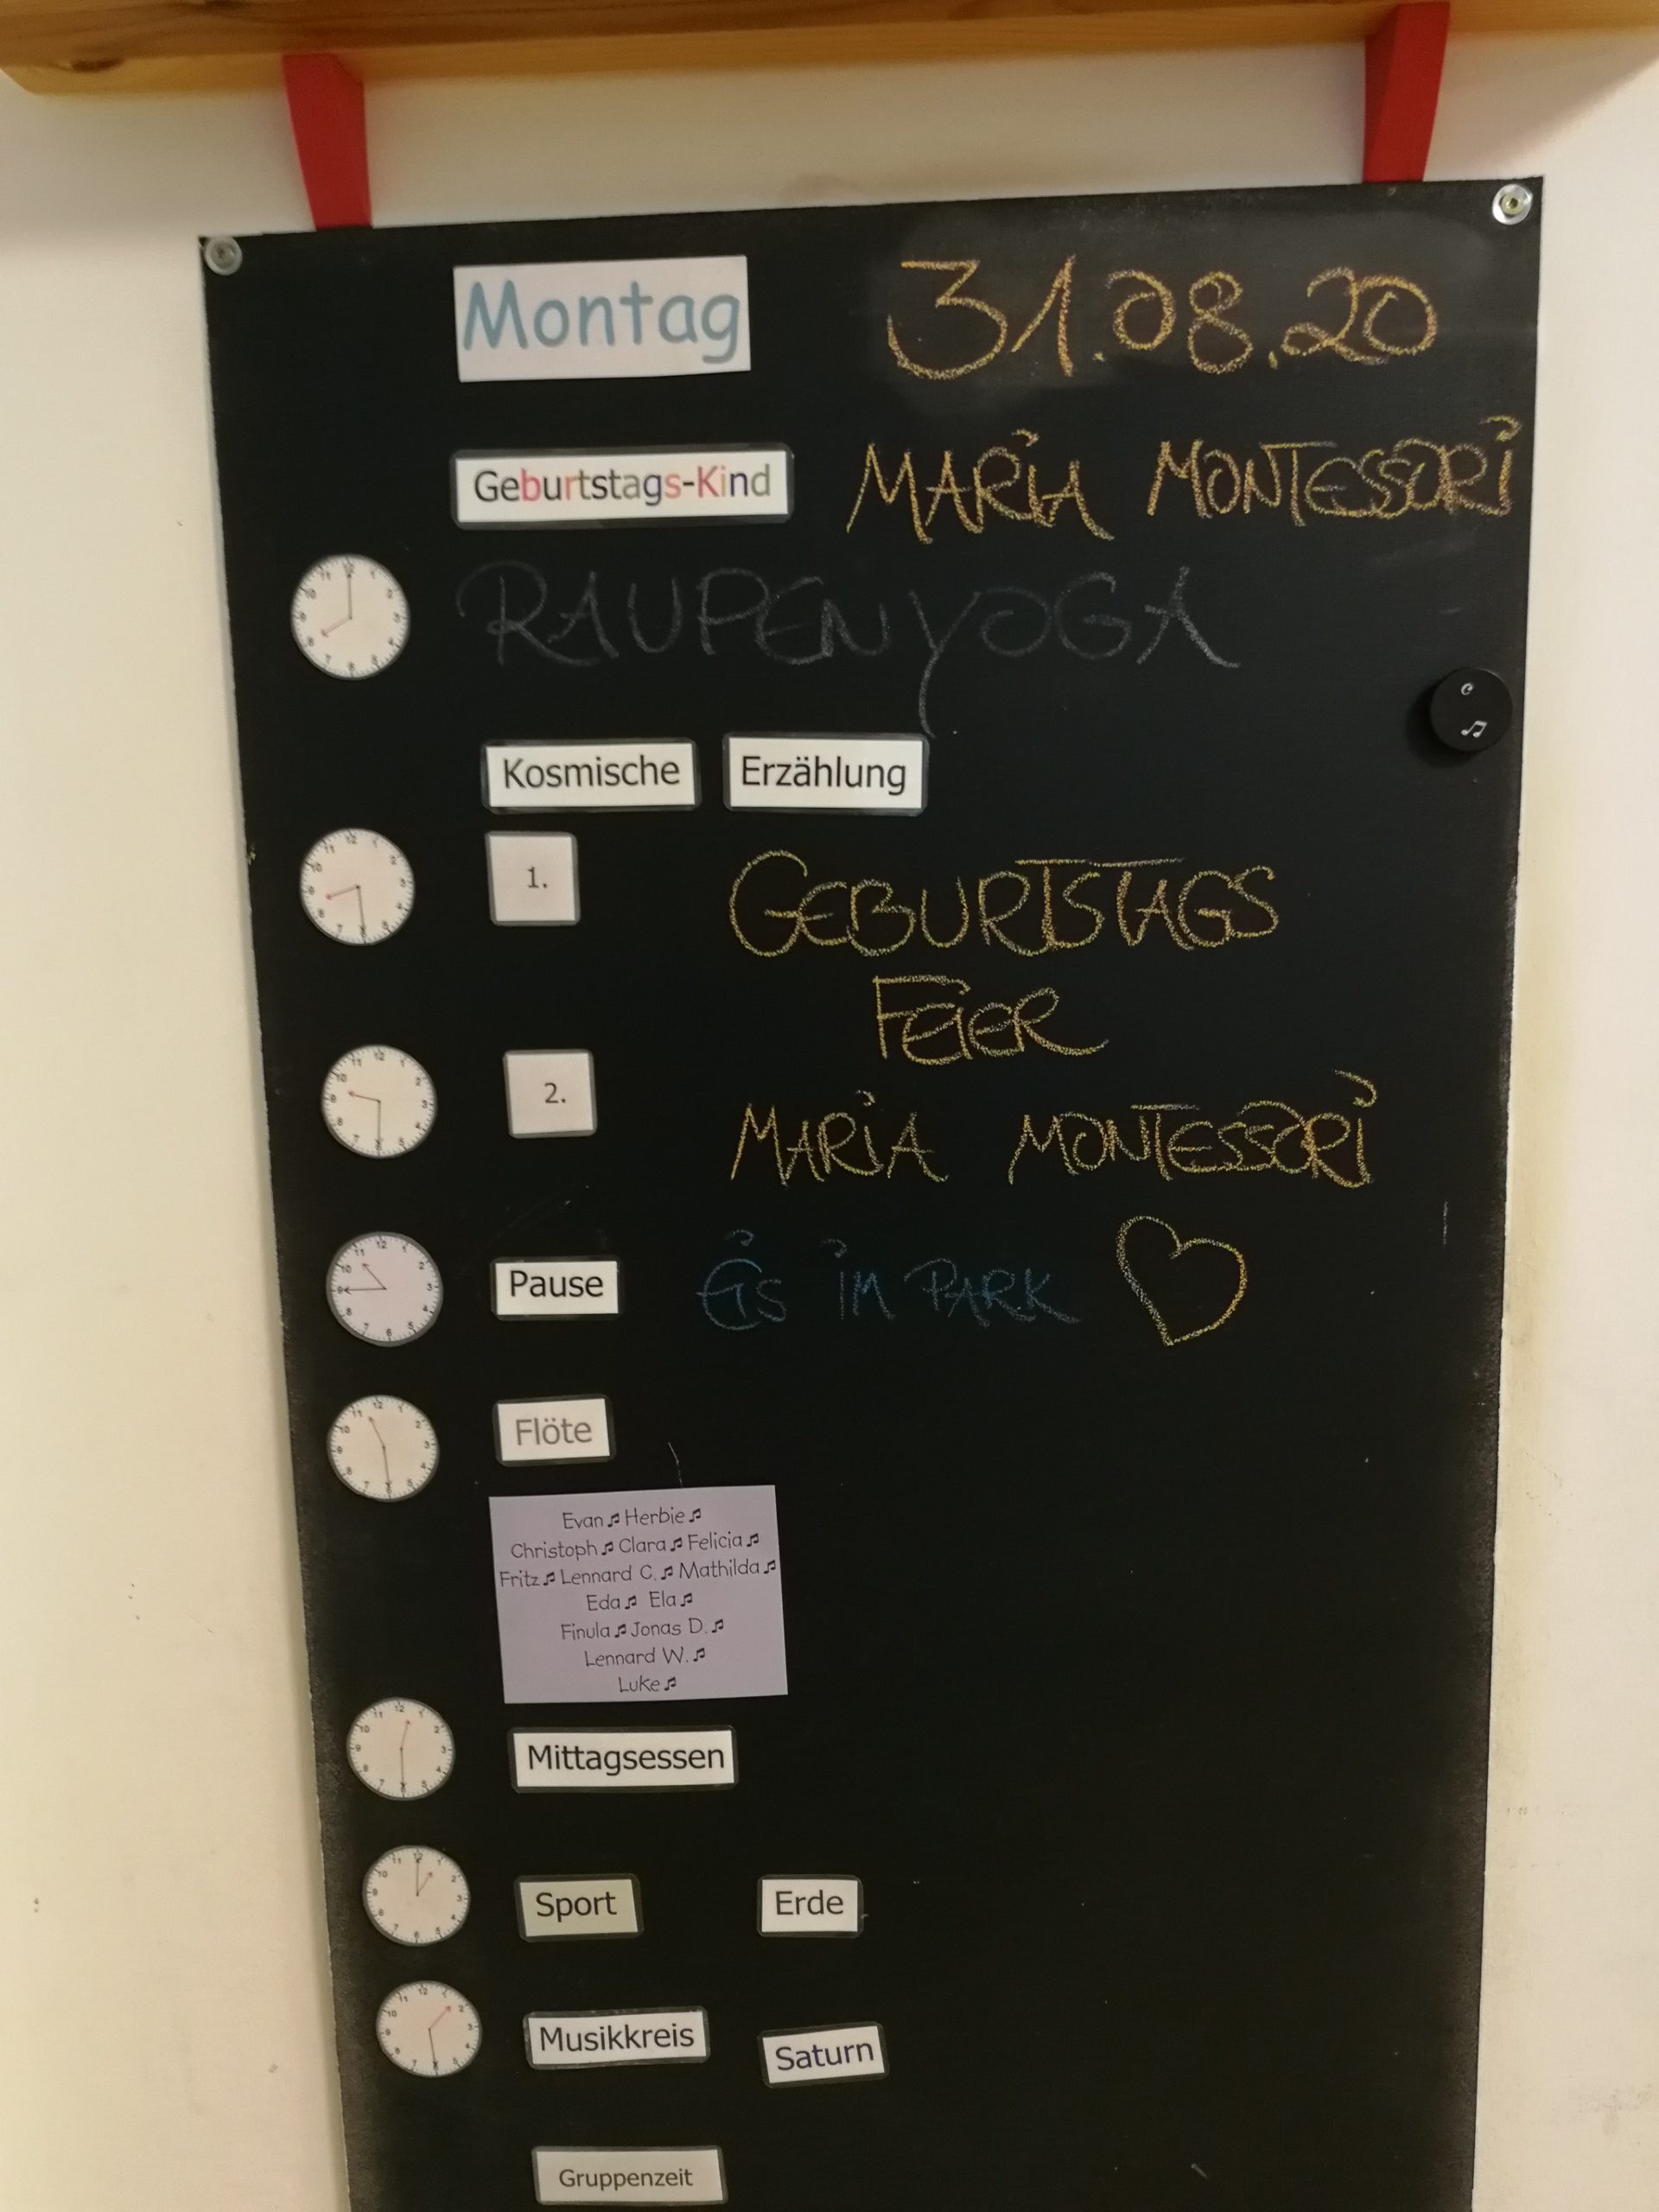 Montag 31.08.20
Geburtstags-Kind MARiA MONTESSORi
RAUPENYOGA
Kosmische Erzählung
1. GEBURTSTAGS
FEiER
2. MARiA MONTESSORi
Pause EiS iM PARK
Flöte
Evan♫Herbie♫
Christoph♫Clara♫Felicia♫
Fritz♫Lennard C.♫Mathilda♫
Eda♫ Ela♫
Finula♫Jonas D.♫
Lennard W.♫
Luke♫
Mittagsessen
Sport Erde
Musikkreis Saturn
Gruppenzeit